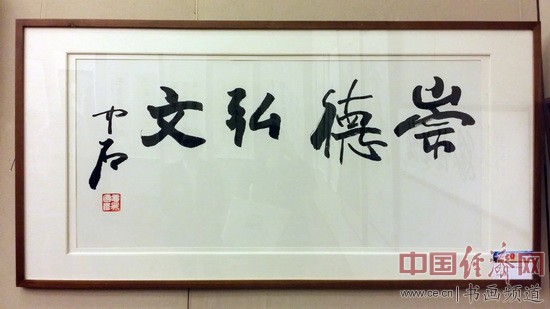 崇德弘文
中石
中国经济网
www.ce.cn|书画频道